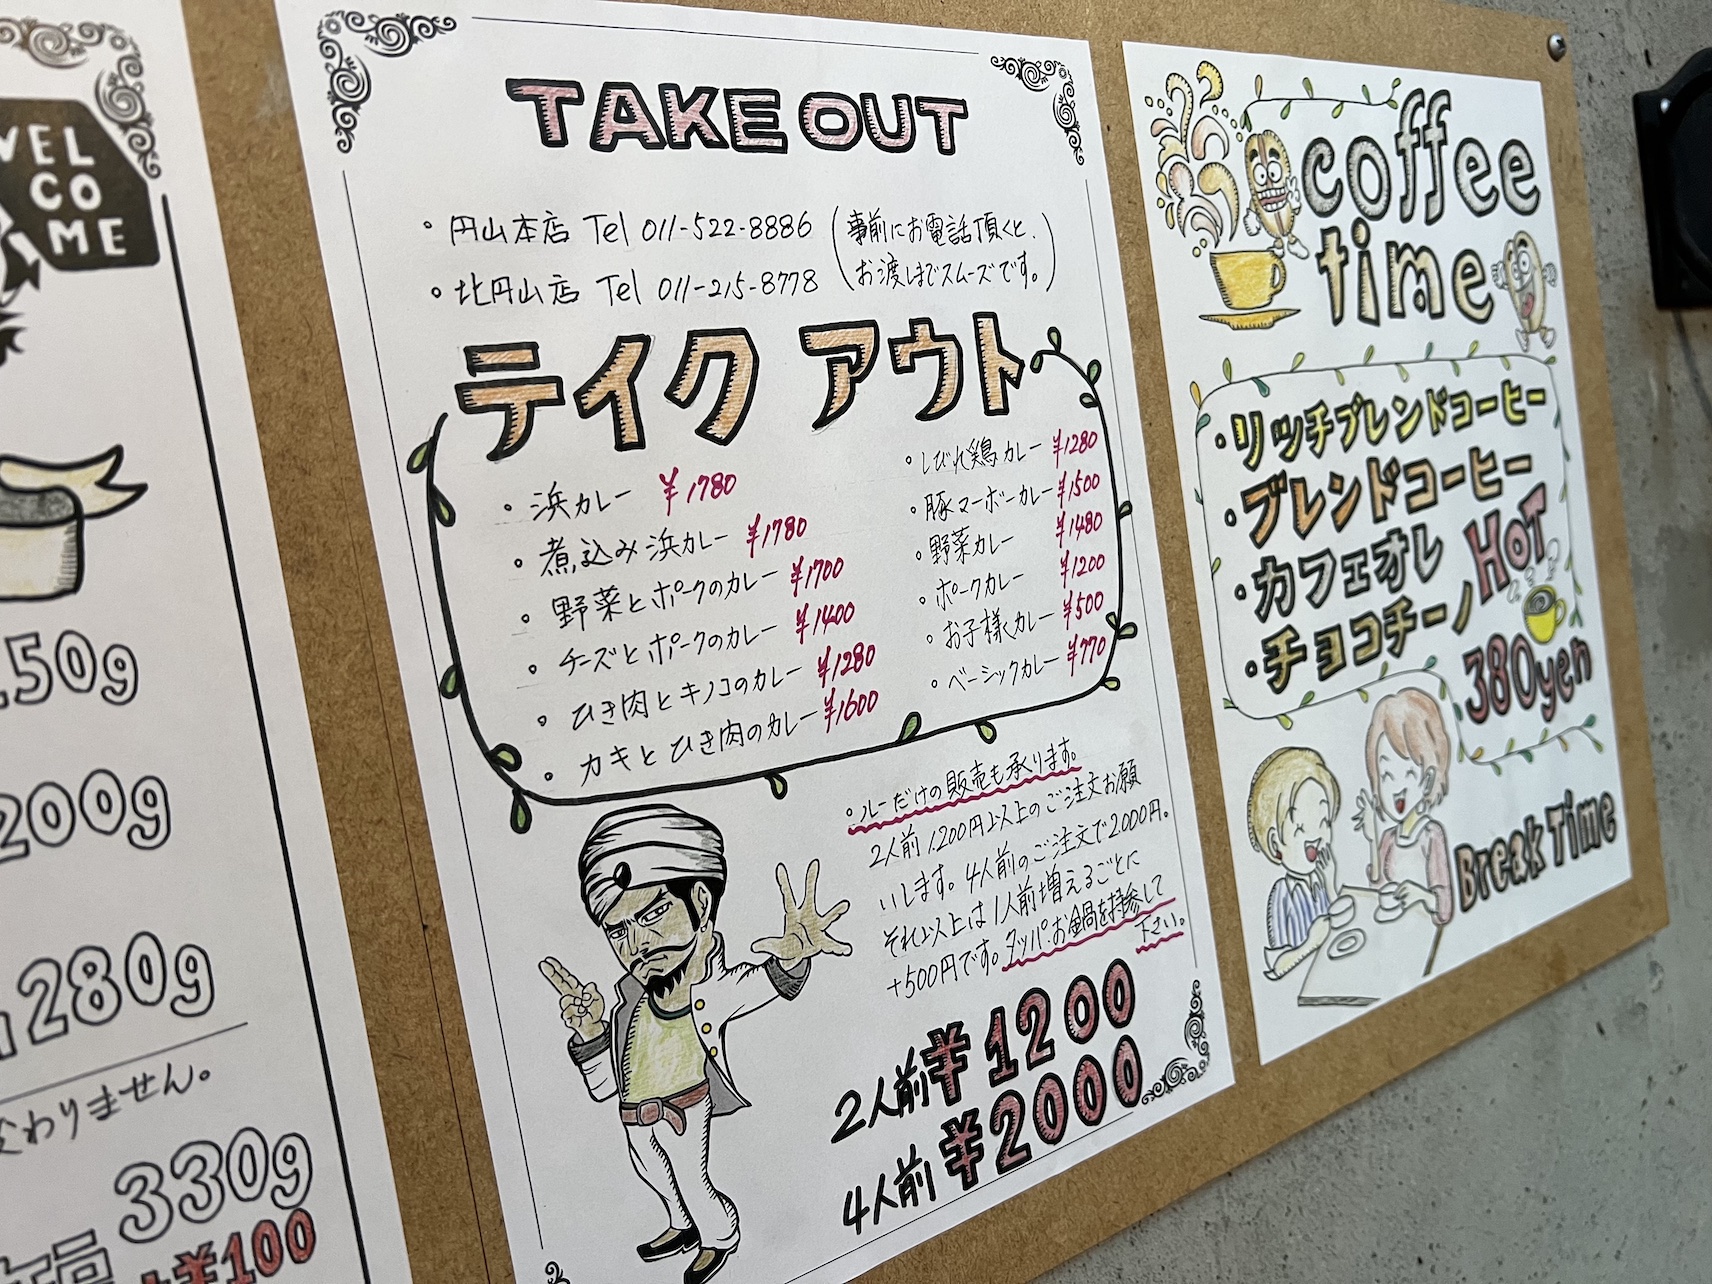 WEL
CO
ME
150g
200g
280g
変わりません。
330g
+¥100
TAKE OUT
・円山本店 Tel 011-522-8886
・北円山店 Tel 011-215-8778
(事前にお電話頂くと、
お渡しまでスムーズです。)
テイク アウト
・浜カレー ¥1780
・煮込み浜カレー ¥1780
・野菜とポークのカレー ¥1700
・チーズとポークのカレー ¥1400
・ひき肉とキノコのカレー ¥1280
・カキとひき肉のカレー ¥1600
・しびれ鶏カレー ¥1280
・豚マーボーカレー ¥1500
・野菜カレー ¥1480
・ポークカレー ¥1200
・お子様カレー ¥500
・ベーシックカレー ¥770
・ルーだけの販売も承ります。
2人前1,200円以上のご注文お願
いします。4人前のご注文で2000円。
それ以上は1人前増えるごとに
+500円です。タッパ・お鍋を持参して
下さい。
2人前¥1200
4人前¥2000
coffee
time
・リッチブレンドコーヒー
・ブレンドコーヒー
・カフェオレ
・チョコチーノ
HOT
380yen
Break Time